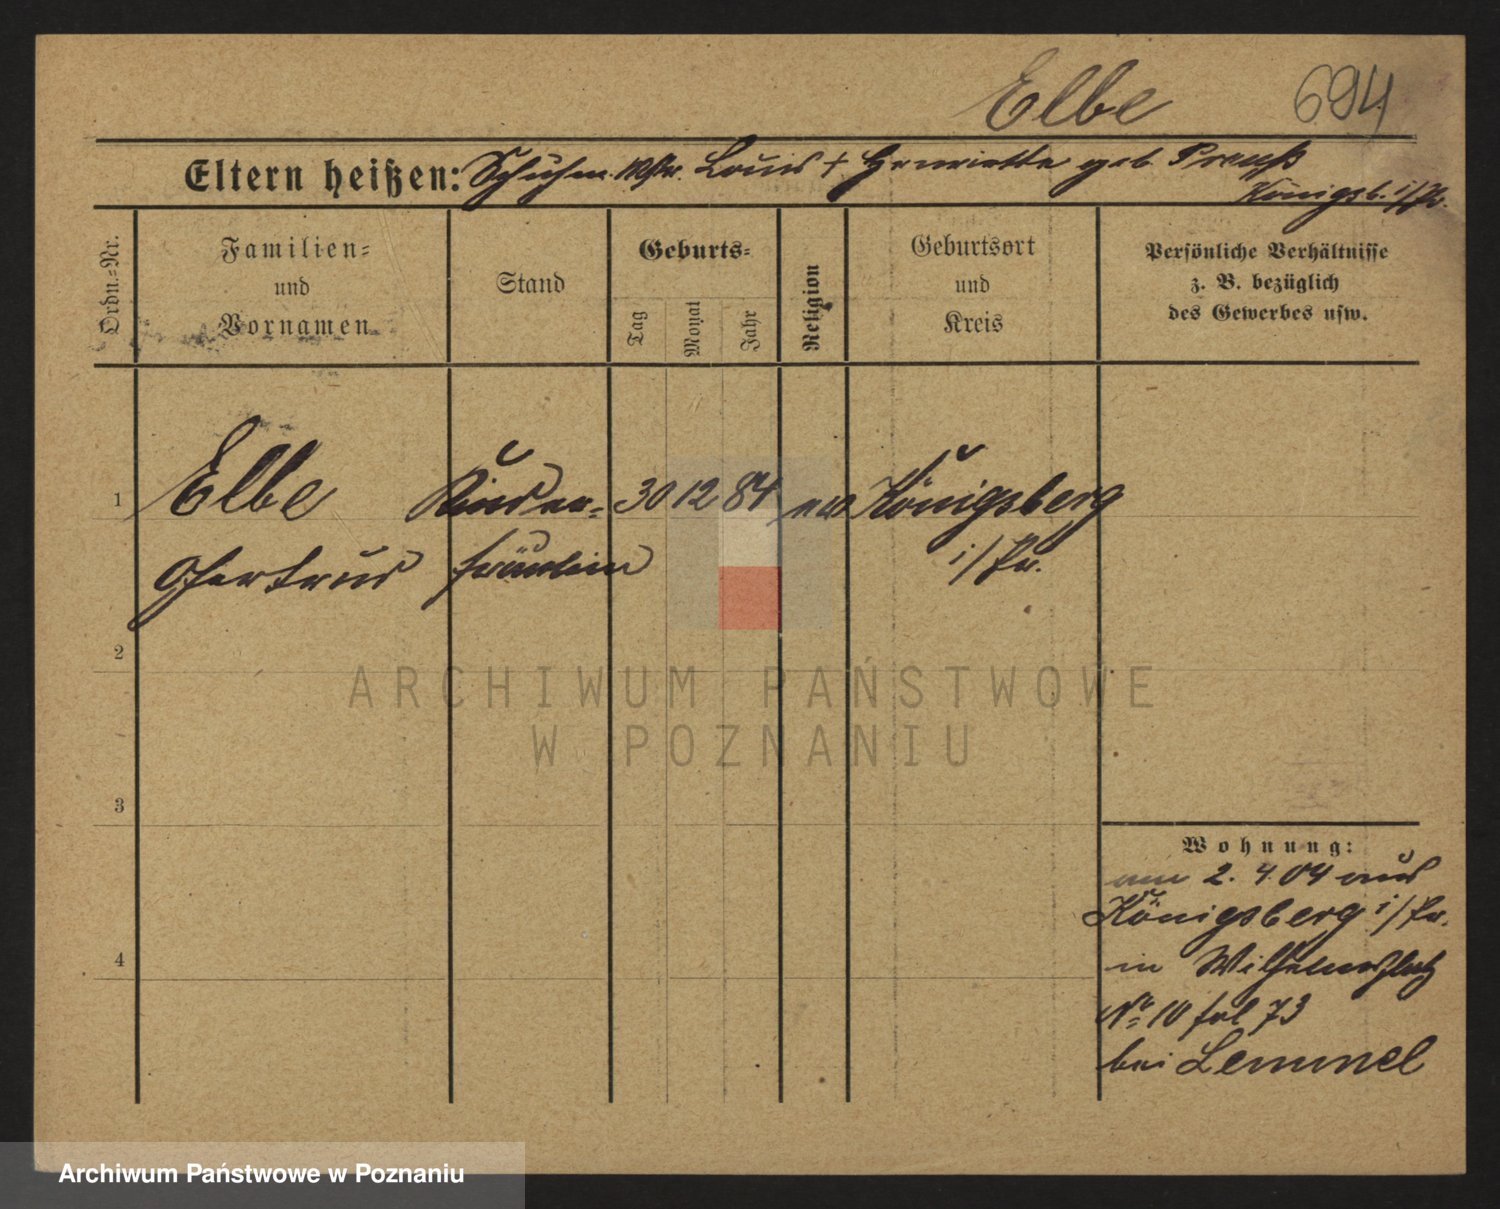 Elbe 694
Eltern heißen: Schuhm. Mstr. Louis + Henriette geb. Preuß
Königsb. i/Pr.
Ordn.-Nr.
Familien-
und
Vornamen
Stand
Geburts-
Tag
Monat
Jahr
Religion
Geburtsort
und
Kreis
Persönliche Verhältnisse
z. B. bezüglich
des Gewerbes usw.
1 Elbe Kinder- 30 12 84 ev Königsberg
Gertrud fräulein i/Pr.
2
3
4
Wohnung:
am 2. 4. 04 aus
Königsberg i/Pr.
in Wilhelmsplatz
No 10 fol 73
bei Lemmel
ARCHIWUM PAŃSTWOWE
W POZNANIU
Archiwum Państwowe w Poznaniu